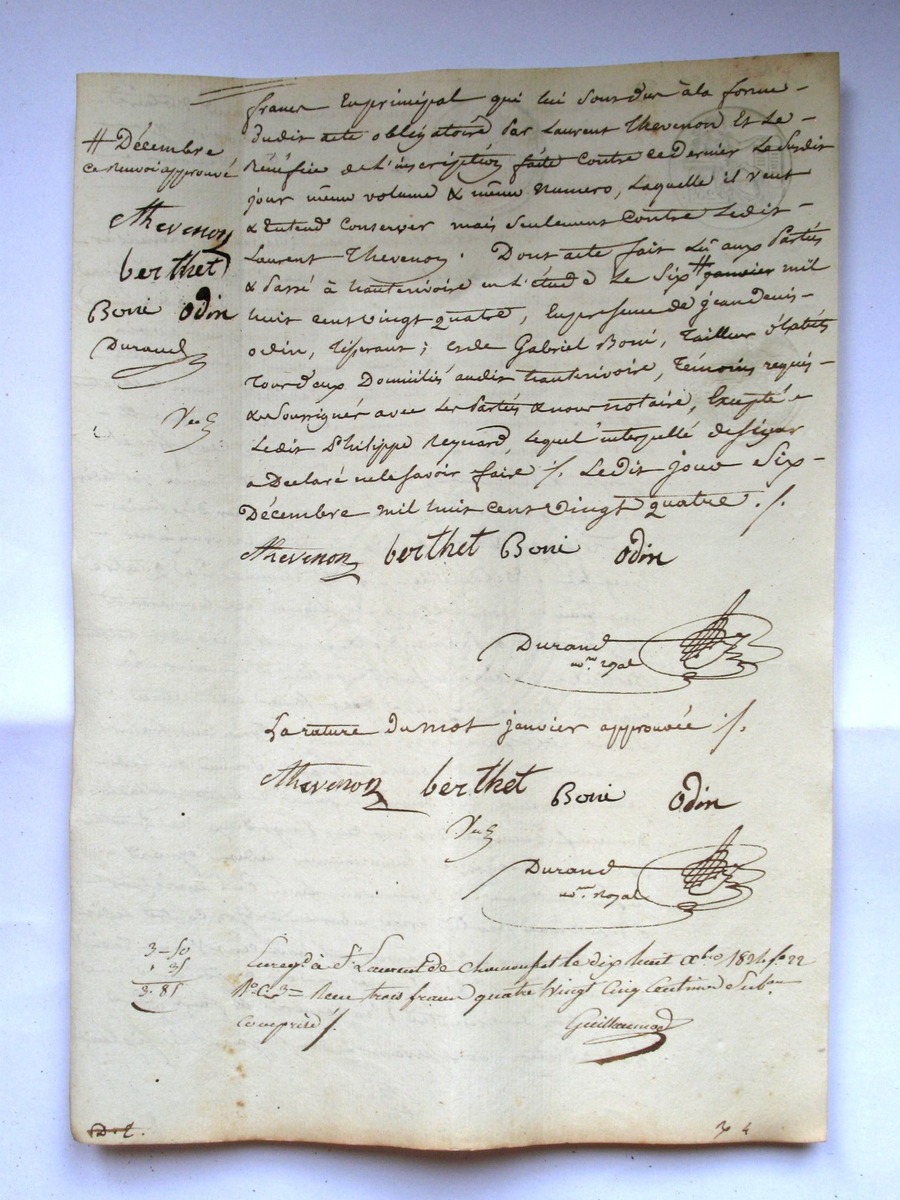 # Décembre
ce renvoi approuvé
Thevenon
berthet
Boni Odin
Durand
francs en principal qui lui sont dus à la forme
dudit acte obligatoire par Laurent Thevenon et le
Bénéfice de l'inscription faite contre ce dernier le susdit
jour même volume & même numero, laquelle il veut
& entend conserver mais seulement contre ledit
Laurent Thevenon. Dont acte fait lu aux Parties
& Passé à hauterivoire en l'étude le six # janvier mil
huit cent vingt quatre, en presence de jean denis
odin, tisserant; et de Gabriel Boni, Tailleur d'habits
tous deux Domiciliés audit hauterivoire, témoins requis
& soussignés avec les Parties & nous notaire, Excepté
ledit Philippe Reynard, lequel interpellé de signer
a Declaré ne le savoir faire ./. Ledit jour Six
Décembre mil huit cent vingt quatre ./.
Thevenon berthet Boni odin
Durand
n.re royal
La rature du mot janvier approuvée ./.
Thevenon berthet Boni Odin
Durand
n.re Royal
3-50
. 35
3. 85
Enreg.é à S.t Laurent de Chamousset le dix huit xbre 1824 f.o 22
R.o C. 3 = Reçu trois francs quatre vingt cinq centimes Sub.on
comprise ./.
Guillaumard